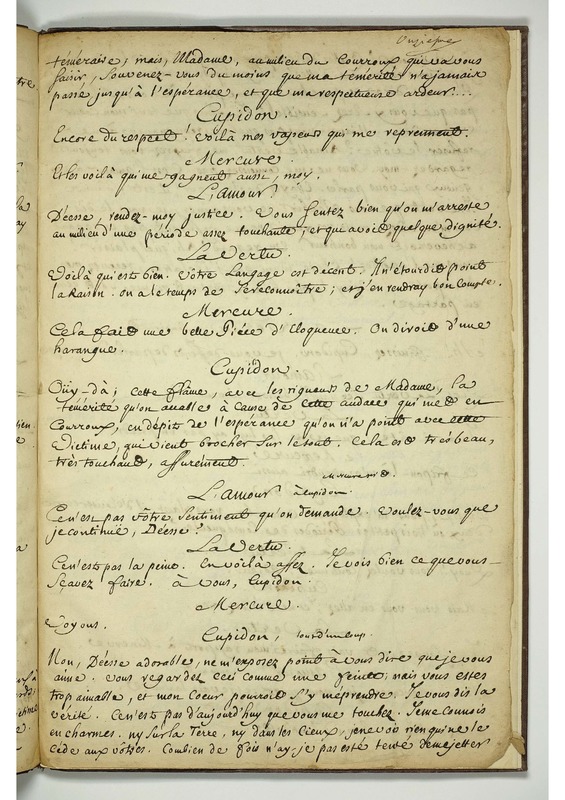 Onzieme
téméraire ; mais, Madame, au milieu du Courroux qui va vous
saisir, souvenez-vous du moins que ma témérité n'a jamais
passé jusqu'à l'esperance, et que ma respectueuse ardeur....
Cupidon.
Encore du respect! voilà mes vapeurs qui me reprennent.
Mercure.
Et les voilà qui me gagnent aussi, moy.
L'amour.
Déesse, rendez-moy justice. Vous sentez bien qu'on m'arreste
au milieu d'une période assez touchante, et qui avoit quelque dignité.
La Vertu.
Voilà qui est bien. Vôtre Langage est décent. Il n'étourdit point
la Raison. on a le temps de se reconnoître ; et j'en rendray bon Compte.
Mercure.
Cela fait une belle Piéce d'Eloquence. On diroit d'une
harangue.
Cupidon.
Oüy-dà ; cette flâme, avec les rigueurs de Madame, la
témérité qu'on accable à Cause de cette audace qui met en
Courroux, en dépit de l'esperance qu'on n'a point avec cette
Victime, qui vient brocher sur le tout. Cela est très beau,
très touchant, assurément.
Mercure rit.
L'amour à Cupidon.
Ce n'est pas vôtre Sentiment qu'on demande. Voulez-vous que
je continuë, Déesse?
La Vertu.
Ce n'est pas la peine. En voilà assez. Je vois bien ce que vous
Sçavez faire. à vous, Cupidon.
Mercure.
Voyons.
Cupidon, tout d'un coup.
Non, Déesse adorable, ne m'exposez point à vous dire que je vous
aime. vous regardez ceci comme une feinte, mais vous estes
trop aimable, et mon Coeur pourroit s'y méprendre. Je vous dis la
vérité. Ce n'est pas d'aujourd'huy que vous me touchez. Je me connois
en charmes. ny sur la Terre, ny dans les Cieux, je ne vois rien qui ne le
céde aux vôtres. Combien de fois n'ay-je pas esté tenté de me jetter